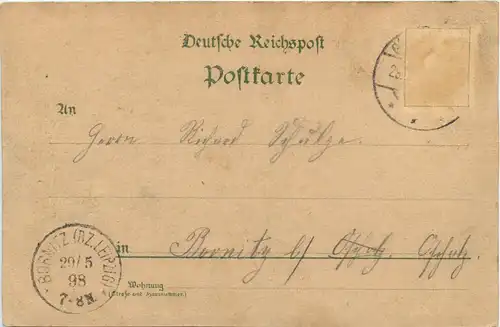 Deutsche Reichspost
Postkarte
An
Herrn Richard Schulze
in Bornitz b/
BORNITZ (BZ. LEIPZIG)
29/5
98
7-8N.
Wohnung
(Straße und Hausnummer)